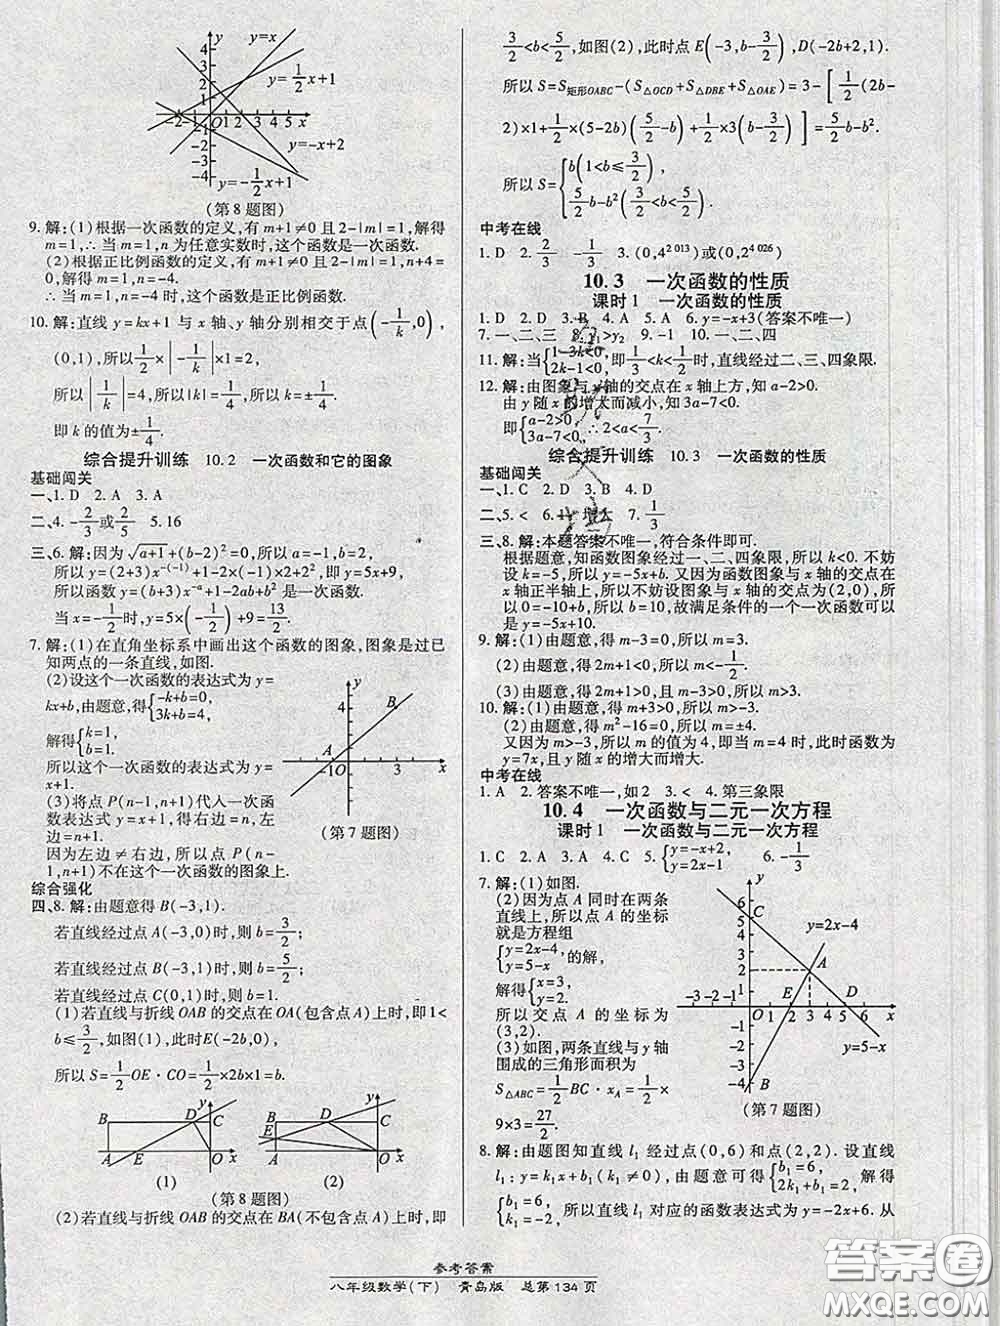 y=x
y=1/2x+1
y=-x+2
y=-1/2x+1
(第8题图)
9. 解:(1)根据一次函数的定义,有 m+1≠0 且 2-|m|=1,解得
m=1,∴当 m=1,n 为任意实数时,这个函数是一次函数.
(2)根据正比例函数的定义,有 m+1≠0 且 2-|m|=1,n+4=
0,解得 m=1,n=-4.
∴当 m=1,n=-4 时,这个函数是正比例函数.
10. 解:直线 y=kx+1 与 x 轴、y 轴分别相交于点(-1/k,0),
(0,1),所以1/2×|-1/k|×1=2,
所以|1/k|=4,所以|k|=1/4,所以 k=±1/4.
即 k 的值为±1/4.
综合提升训练 10.2 一次函数和它的图象
基础闯关
一、1. D 2. A 3. A
二、4. -2/3或2/5 5. 16
三、6. 解:因为√(a+1)+(b-2)²=0,所以 a=-1,b=2,
所以 y=(2+3)x^(-(-1))+1-2×(-1)×2+2²,即 y=5x+9,
所以函数 y=(b+3)x^(-a)+1-2ab+b² 是一次函数.
当 x=-1/2时,y=5×(-1/2)+9=13/2.
7. 解:(1)在直角坐标系中画出这个函数的图象,图象是过已
知两点的一条直线,如图.
(2)设这个一次函数的表达式为 y=
kx+b,由题意,得{-k+b=0, 3k+b=4,
解得{k=1, b=1.
所以这个一次函数的表达式为 y=
x+1.
(3)将点 P(n-1,n+1)代人一次函
数表达式 y=x+1,得 n+1=n-1
+1=n.
因为左边≠右边,所以点 P(n-
1,n+1)不在这个一次函数的图象上.
(第7题图)
综合强化
四、8. 解:由题意得 B(-3,1).
若直线经过点 A(-3,0)时,则 b=3/2;
若直线经过点 B(-3,1)时,则 b=5/2;
若直线经过点 C(0,1)时,则 b=1.
(1)若直线与折线 OAB 的交点在 OA(包含点 A)上时,即 1<
b≤3/2,如图(1),此时 E(-2b,0),
所以 S=1/2OE·CO=1/2×2b×1=b.
(1) (2)
(第8题图)
(2)若直线与折线 OAB 的交点在 BA(不包含点 A)上时,即
3/2<b<5/2,如图(2),此时点 E(-3,b-3/2),D(-2b+2,1).
所以 S=S矩形OABC-(S△OCD+S△DBE+S△OAE)=3-[1/2(2b-
2)×1+1/2×(5-2b)(5/2-b)+1/2×3(b-3/2)]=5/2b-b².
所以 S={b(1<b≤3/2), 5/2b-b²(3/2<b<5/2).
中考在线
1. D 2. 2/3 -1/3 3. (0,4^2013)或(0,2^4026)
10.3 一次函数的性质
课时1 一次函数的性质
1. D 2. D 3. B 4. A 5. A 6. y=-x+3(答案不唯一)
7. 一、二、四 8. y1>y2 9. -1 10. 一、二、四
11. 解:当{1-3k<0, 2k-1<0,即1/3<k<1/2时,直线经过二、三、四象限.
12. 解:由图象与 y 轴的交点在 x 轴上方,知 a-2>0.
由 y 随 x 的增大而减小,知 3a-7<0.
即{a-2>0, 3a-7<0,∴2<a<7/3.
综合提升训练 10.3 一次函数的性质
基础闯关
一、1. C 2. D 3. B 4. D
二、5. < 6. 增大 7. 1/3
三、8. 解:本题答案不唯一,符合条件即可.
根据题意,知函数图象经过一、二、四象限,所以 k<0. 不妨
设 k=-5,所以 y=-5x+b. 又因为函数图象与 x 轴的交点在
x 轴正半轴上,所以不妨设图象与 x 轴的交点为(2,0),所
以 0=-10+b,所以 b=10,故满足条件的一个一次函数可以
是 y=-5x+10.
9. 解:(1)由题意,得 m-3=0,所以 m=3.
(2)由题意,得 2m+1<0,所以 m<-1/2.
(3)由题意,得 2m+1>0,且 m-3>0,所以 m>3.
10. 解:(1)由题意,得 m+3>0,所以 m>-3.
(2)由题意,得 m²-16=0,所以 m=±4.
又因为 m>-3,所以 m 的值为 4,即当 m=4 时,此时函数为
y=7x,且 y 随 x 的增大而增大.
中考在线
1. A 2. 答案不唯一,如 2 3. < 4. 第三象限
10.4 一次函数与二元一次方程
课时1 一次函数与二元一次方程
1. C 2. A 3. C 4. C 5. {y=-x+2, y=2x-1 6. -1/3
7. 解:(1)如图.
(2)因为点 A 同时在两条
直线上,所以点 A 的坐标
就是方程组
{y=2x-4, y=5-x 的解,
解得{x=3, y=2.
所以交点 A 的坐标为
(3,2).
(3)如图,两条直线与 y 轴
围成的三角形面积为
S△ABC=1/2BC·xA=1/2
×9×3=27/2.
y=2x-4
y=5-x
(第7题图)
8. 解:由题图知直线 l1 经过点(0,6)和点(2,2). 设直线
l1:y=k1x+b1(k1≠0),由题意可得{b1=6, 2k1+b1=2,解得
{b1=6, k1=-2,所以直线 l1 对应的函数表达式为 y=-2x+6. 从
参考答案
八年级数学(下) 青岛版 总第134页
答案圈
MXQE.COM